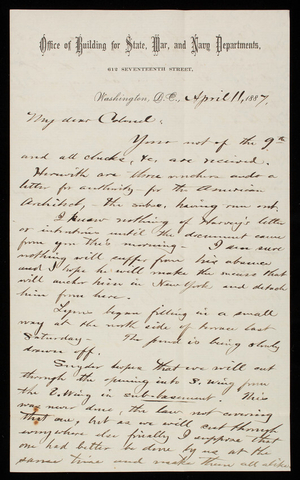 Office of Building for State, War, and Navy Departments,
612 SEVENTEENTH STREET,
Washington, D.C., April 11, 1887.
My dear Colonel:
Yours of the 9th
and all checks, &c. are received.
Herewith are three vouchers and a
letter for authority for the American
Architect, - the subs. having run out.
I knew nothing of Harvey's letter
or intentions until the document came
from you this morning - I am sure
nothing will suffer from his absence
and I hope he will make the means that
will anchor him in New York and detach
him from here.
Lyons began filling in a small
way at the north side of terrace last
Saturday - The pond is being slowly
drawn off.
Snyder hopes that we will cut
through the opening into S. Wing from
the E. Wing in sub-basement. This
was never done, the law not covering
that one, but as we will cut through
somewhere else finally I suppose that
one had better be done by us at the
same time and make them all alike